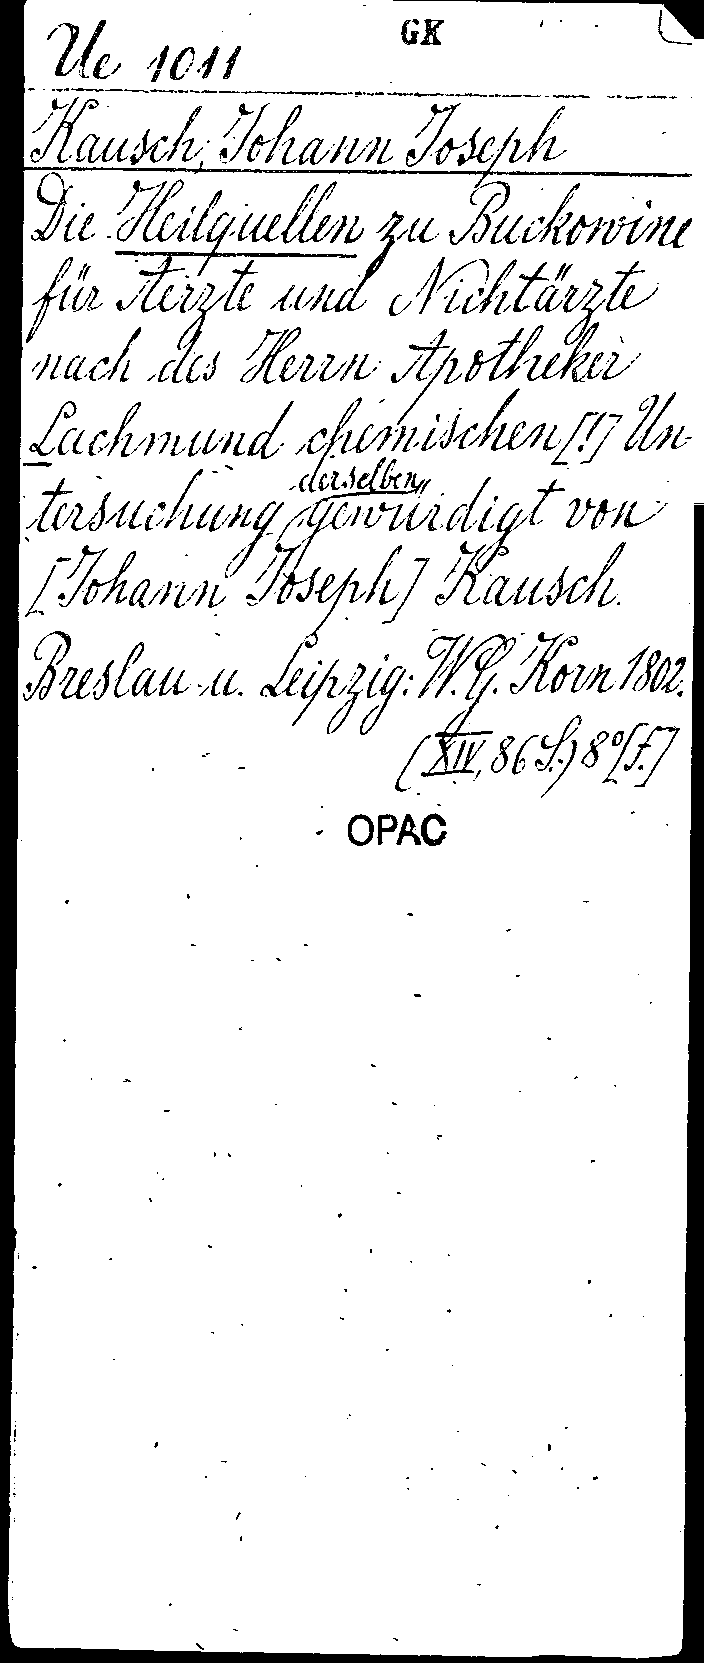 GK
Ue 1011
Kausch, Johann Joseph
Die Heilquellen zu Buckowine
für Aerzte und Nichtärzte
nach des Herrn Apotheker
Lachmund chemischen [!] Un-
tersuchung derselben gewürdigt von
[Johann Joseph] Kausch.
Breslau u. Leipzig: W. G. Korn 1802.
(XIV, 86 S.) 8° [f.]
OPAC